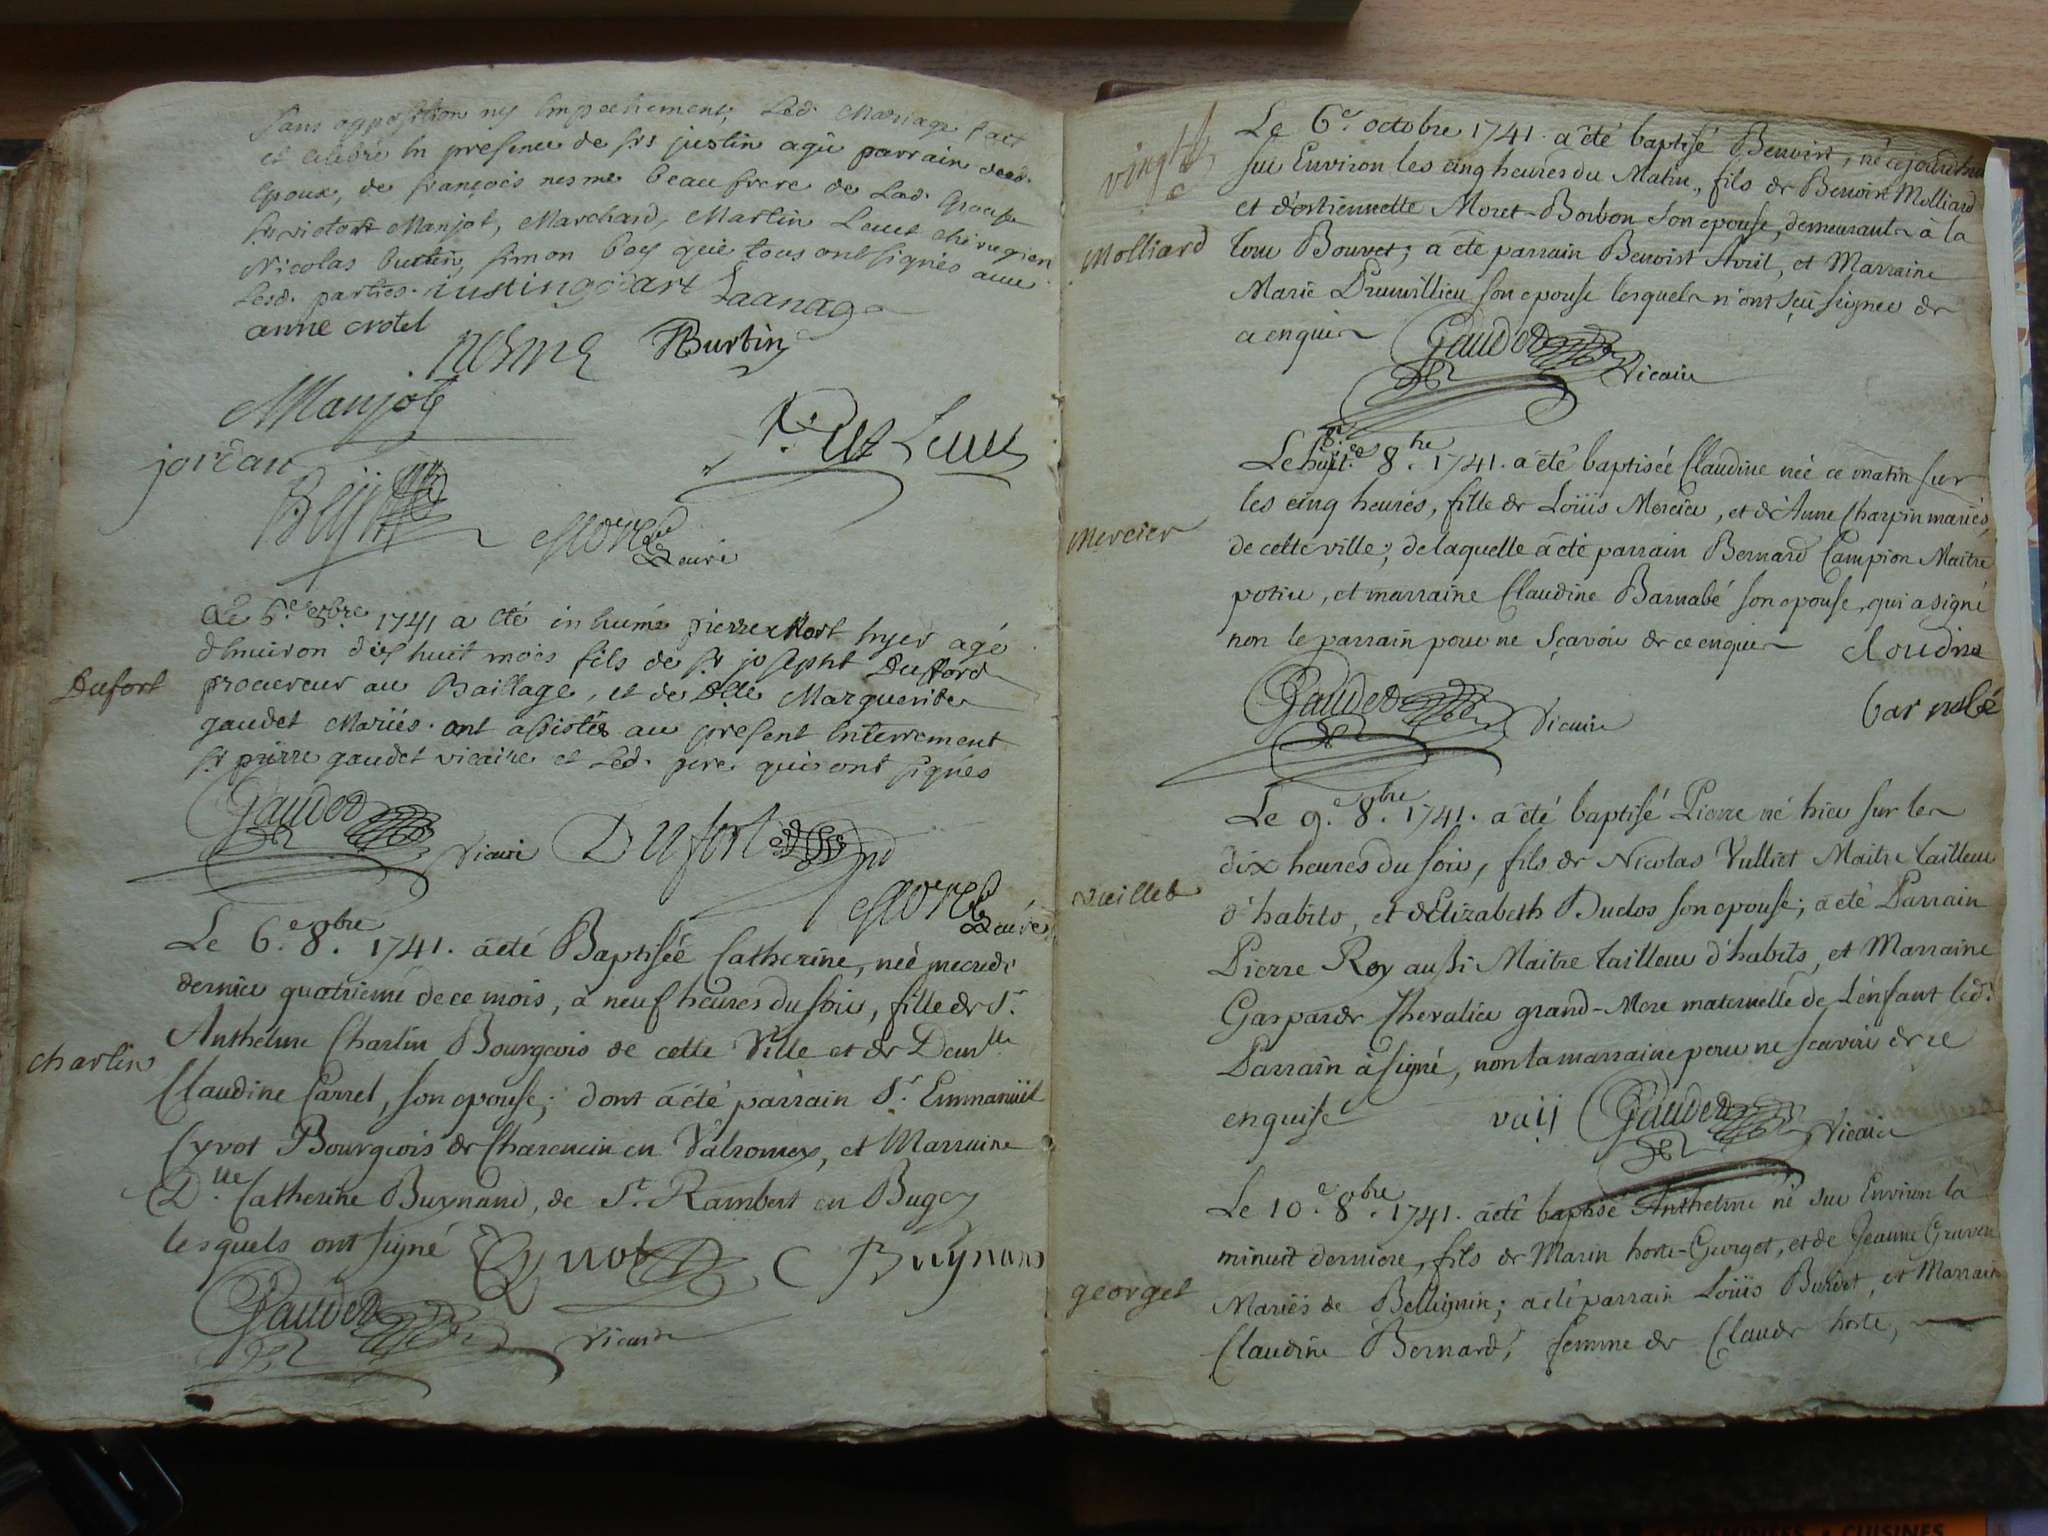 Sans opposition ny Empechement, Led. Mariage fait
et celebré En presence de srs justin agu parrain dud.
Epoux, de françois nesme beaufrere de Lad. Epouse
Manjot, Marchand, Martin Leuet chirugien
Nicolas burtin, simon bey què tous ont signés avec
Lesd. parties.
anne crotel
nesme Burtin
Manjot
joréan
Leuet
curé
Dufort
Le 6.e 8bre 1741 a été inhumé pierre hyer agé
d'Environ dix huit mois fils de sr joseph Dufford
procureur au Baillage, et de dlle Marguerite
gaudet Mariés. ont assistés au present Enterrement
sr pierre gaudet vicaire et Led. pere qui ont signés
Gaudet vicaire Dufort
curé
Charlin
Le 6.e 8.bre 1741. a été Baptisée Catherine, née mecredi
dernier quatrieme de ce mois, à neuf heures du soir, fille de Sr.
Anthelme Charlin Bourgeois de cette Ville et de Demlle
Claudine Carrel, son epouse; dont a été parrain Sr. Emmanüel
Cyvot Bourgeois de Charencin en Valromey, et Marraine
Dlle Catherine Buynand, de St. Rambert en Bugey
lesquels ont signé Cyvot C Buynand
Gaudet vicaire
vingt
Molliard
Le 6.e octobre 1741. a été baptisé Benoist, né cejourd'hui
sur Environ les cinq heures du Matin, fils de Benoist Molliard
et d'ostiennette Moret-Bonbon son epouse, demeurants à la
tour Bouvet; a été parrain Benoist Avril, et Marraine
Marie Druvillieu son epouse lesquels n'ont sçu signer de
a enquis Gaudet Vicaire
Mercier
Le 8.bre 1741. a été baptisée Claudine née ce matin sur
les cinq heures, fille de Loüis Mercier, et d'Anne Charpin mariés,
de cette ville; de laquelle a été parrain Bernard Campion Maitre
potier, et marraine Claudine Barnabé son epouse, qui a signé
non le parrain pour ne sçavoir de ce enquis Cloudina
Gaudet Vicaire barnabé
Vuillet
Le 9.e 8.bre 1741. a été baptisé Pierre né hier sur les
dix heures du soir, fils de Nicolas Vulliet Maitre tailleur
d'habits, et d'Elizabeth Duclos son epouse; a été Parrain
Pierre Roy aussi Maitre tailleur d'habits, et Marraine
Gasparde Chevalier grand-Mere maternelle de l'enfant led.
Parrain à signé, non la marraine pour ne scavoir de ce
enquise Gaudet Vicaire
georget
Le 10.e 8.bre 1741. a été baptisé Anthelme né sur Environ la
minuit derniere, fils de Marin horte-Gurget, et de Jeanne
Mariés de Bellignin; a été parrain Loüis Burdet, et Marraine
Claudine Bernard, femme de Claude horte,
CHEMINEES CUISINES